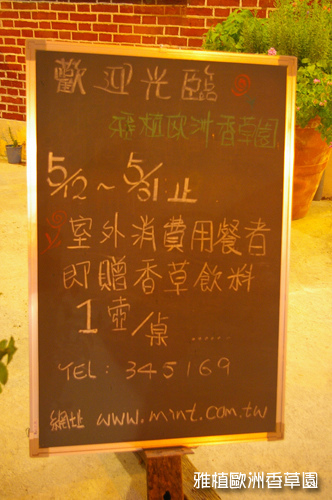 歡迎光臨
雅植歐洲香草園
5/12~5/31止
室外消費用餐者
即贈香草飲料
1壺/桌......
TEL: 345169
網址 www.mint.com.tw
雅植歐洲香草園